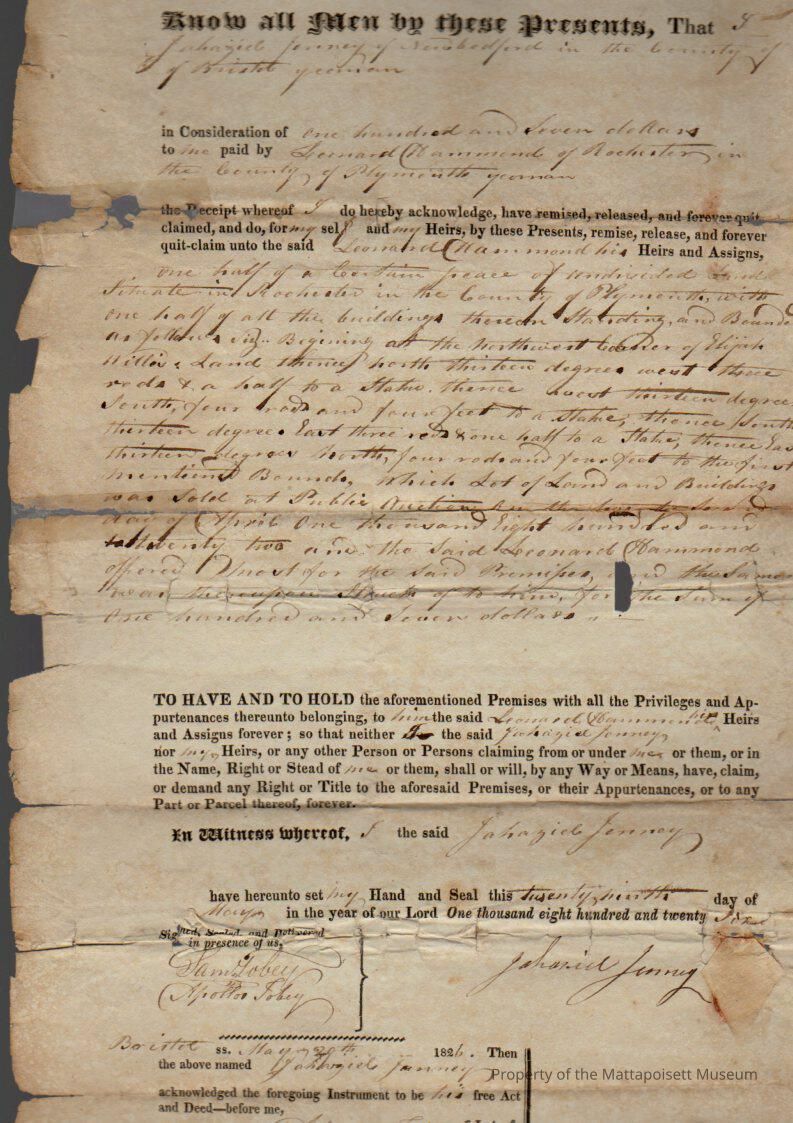 Know all Men by these Presents, That I
Jahaziel Jenney of Newbedford in the County of
of Bristol yeoman
in Consideration of one hundred and Seven dollars
to me paid by Leonard Hammond of Rochester in
the County of Plymouth yeoman
the Receipt whereof I do hereby acknowledge, have remised, released, and forever quit-
claimed, and do, for my self and my Heirs, by these Presents, remise, release, and forever
quit-claim unto the said Leonard Hammond his Heirs and Assigns,
one half of a Certain peace of undivided Land
Situate in Rochester in the County of Plymouth, with
one half of all the buildings thereon Standing, and Bounded
as follows viz. Begining at the Northwest Corner of Elijah
Willis Land thence north thirteen degrees west three
rods & a half to a Stake. thence west thirteen degrees
South, four rods and four feet to a stake; thence South
thirteen degrees East three rods & one half to a Stake, thence East
thirteen degrees North, four rods and four feet to the first
mentioned Bounds, which Lot of Land and Buildings
was Sold at Public Auction on the
day of April One thousand Eight hundred and
twenty two and the Said Leonard Hammond
offered most for the Said Premises, and the Same
was thereupon Struck of to him, for the Sum of
One hundred and Seven dollars
TO HAVE AND TO HOLD the aforementioned Premises with all the Privileges and Ap-
purtenances thereunto belonging, to him the said Leonard Hammond his Heirs
and Assigns forever; so that neither I the said Jahaziel Jenney
nor my Heirs, or any other Person or Persons claiming from or under me or them, or in
the Name, Right or Stead of me or them, shall or will, by any Way or Means, have, claim,
or demand any Right or Title to the aforesaid Premises, or their Appurtenances, or to any
Part or Parcel thereof, forever.
In Witness whereof, I the said Jahaziel Jenney
have hereunto set my Hand and Seal this twenty ninth day of
May in the year of our Lord One thousand eight hundred and twenty Six
Signed, Sealed, and Delivered
in presence of us,
Saml Tobey
Apollos Tobey
Jahaziel Jenney
Bristol ss. May 29th 1826. Then
the above named Jahaziel Jenney
acknowledged the foregoing Instrument to be his free Act
and Deed—before me,
Property of the Mattapoisett Museum